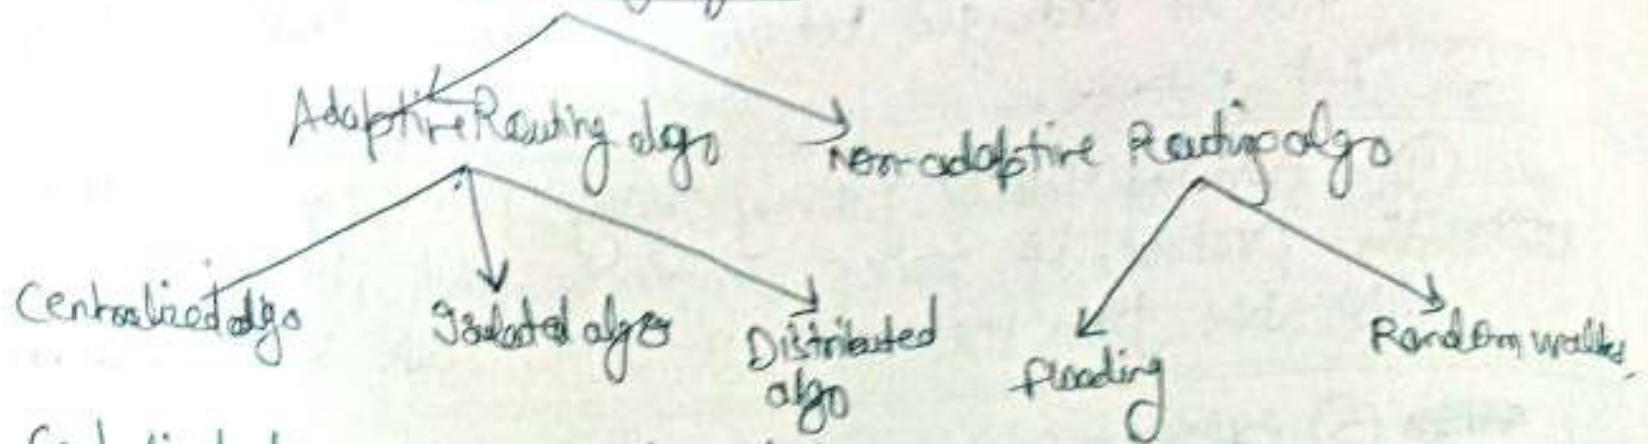 Adaptive Routing algo
Non-adaptive Routing algo
Centralized algo
Isolated algo
Distributed
algo
flooding
Random walks